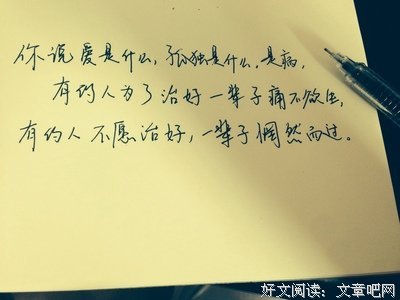 你说爱是什么,孤独是什么,是病,
有的人为了治好一辈子痛不欲生,
有的人不愿治好,一辈子惘然而过。
好文阅读：文章吧网